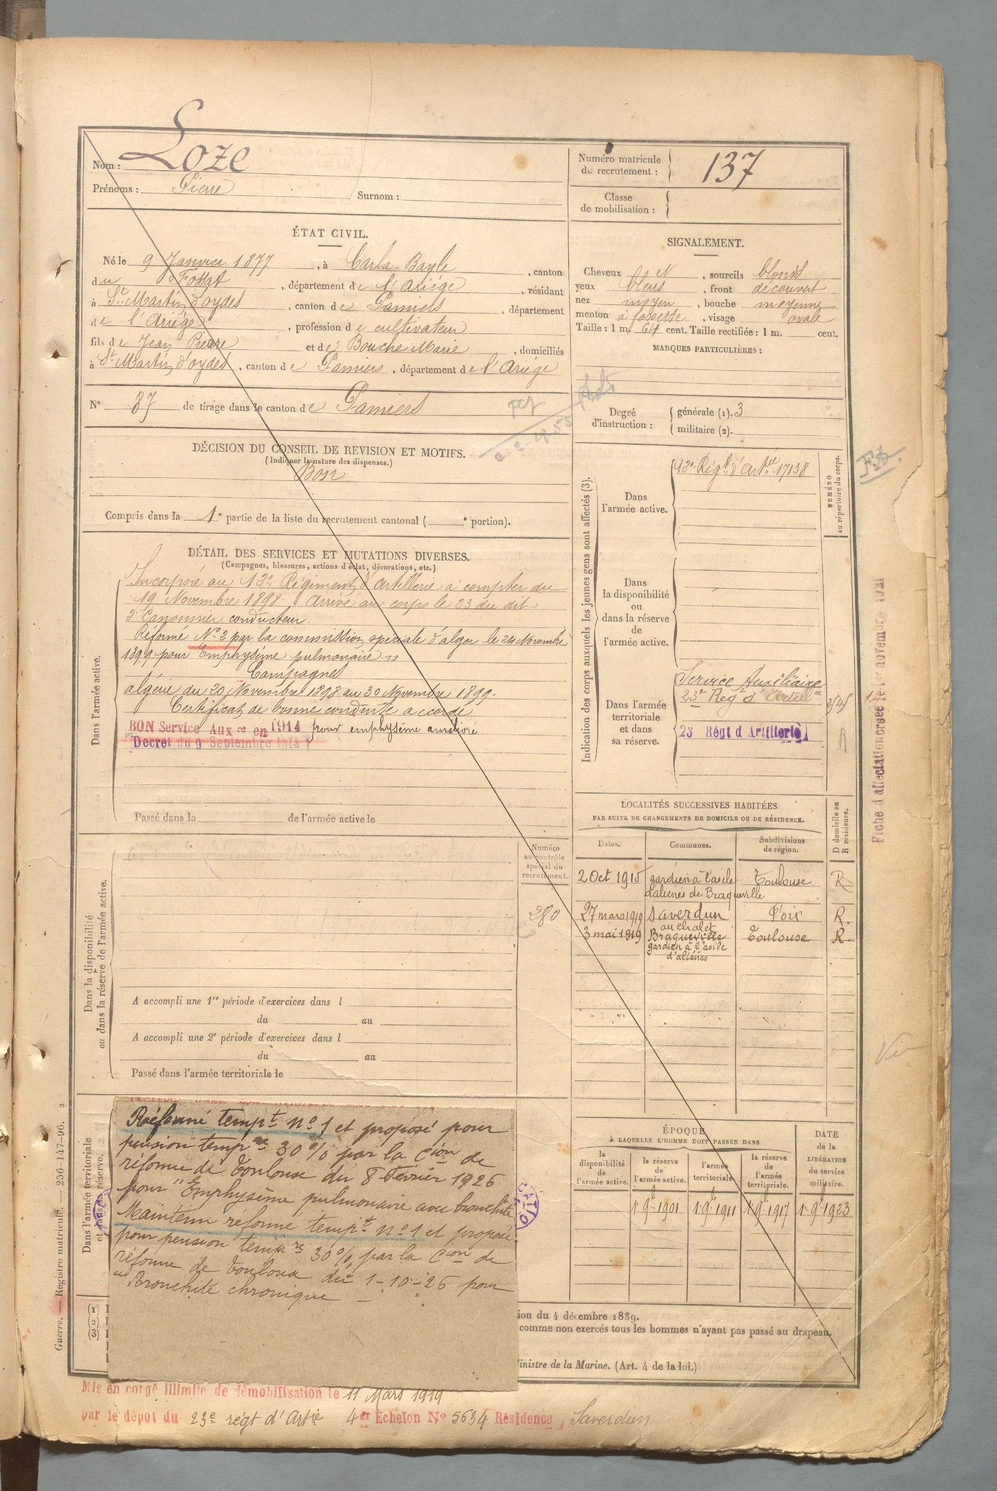 Nom : Loze
Prénoms : Pierre
Surnom :
Numéro matricule
du recrutement : 137
Classe
de mobilisation :
ÉTAT CIVIL.
Né le 9 Janvier 1877, à Carla Bayle, canton
du Fossat, département de l'Ariège, résidant
à St Martin d'oydes, canton de Pamiers, département
de l'Ariège, profession de cultivateur
fils de Jean Pierre et de Bouche Marie, domiciliés
à St Martin d'oydes, canton de Pamiers, département de l'Ariège
N° 87 de tirage dans le canton de Pamiers
SIGNALEMENT.
Cheveux et, sourcils blonds
yeux bleus, front découvert
nez moyen, bouche moyenne
menton à fossette, visage ovale
Taille : 1 m. 64 cent. Taille rectifiée : 1 m. cent.
MARQUES PARTICULIÈRES :
Degré
d'instruction :
générale (1). 3
militaire (2).
DÉCISION DU CONSEIL DE REVISION ET MOTIFS.
(Indiquer la nature des dispenses.)
Bon
Compris dans la 1e partie de la liste du recrutement cantonal ( e portion).
DÉTAIL DES SERVICES ET MUTATIONS DIVERSES.
(Campagnes, blessures, actions d'éclat, décorations, etc.)
Dans l'armée active.
Incorporé au 13e Régiment d'artillerie à compter du
19 Novembre 1898. Arrivé au corps le 23 du dit
2e Canonnier conducteur.
Réformé N° 2 par la commission spéciale d'alger le 24 Novembre
1899 pour Emphysème pulmonaire
Campagne
algérie du 20 Novembre 1898 au 30 Novembre 1899.
Certificat de bonne conduite accordé
BON Service Auxre en 1914 pour emphysème amélioré
Decret du 9 Septembre 1914
Passé dans la de l'armée active le
Indication des corps auxquels les jeunes gens sont affectés (3).
NUMÉRO
au répertoire du corps.
Dans
l'armée active.
13e Régt d'Artie 17138
Dans
la disponibilité
ou
dans la réserve
de
l'armée active.
Dans l'armée
territoriale
et dans
sa réserve.
Service Auxiliaire
23e Regt d'Artillie
23 Régt d'Artillerie
Fiche d'affectation créée le 1er novembre 1921
LOCALITÉS SUCCESSIVES HABITÉES
PAR SUITE DE CHANGEMENTS DE DOMICILE OU DE RÉSIDENCE.
Dates.
Communes.
Subdivisions
de région.
D domicile ou
R résidence.
2 Oct 1915 gardien à l'asile Toulouse R
d'aliénés de Braqueville
27 mars 1919 Saverdun Foix R.
au chalet
3 mai 1919 Braqueville Toulouse R.
gardien à l'asile
d'aliénés
Dans la disponibilité
ou dans la réserve de l'armée active.
Numéro
au contrôle
spécial du
recrutement.
280
A accompli une 1re période d'exercices dans l
du au
A accompli une 2e période d'exercices dans l
du au
Passé dans l'armée territoriale le
Dans l'armée territoriale
et dans sa réserve.
Réformé tempt n°1 et proposé pour
pension tempre 30 % par la Cion de
réforme de Toulouse du 8 Février 1926
pour "Emphysème pulmonaire avec bronchite"
Maintenu réformé tempt n°1 et proposé
pour pension tempre 30 % par la Cion de
réforme de Toulouse du 1-10-26 pour
"Bronchite chronique
ÉPOQUE
À LAQUELLE L'HOMME DOIT PASSER DANS
la
disponibilité
de
l'armée active.
la réserve
de
l'armée active.
l'armée
territoriale.
la réserve
de
l'armée
territoriale.
DATE
de la
LIBÉRATION
du service
militaire.
1 9bre 1901 1 9bre 1911 1 9bre 1917 1 9bre 1923
ion du 4 décembre 1889.
comme non exercés tous les hommes n'ayant pas passé au drapeau.
Ministre de la Marine. (Art. 4 de la loi.)
Guerre. — Registre matricule. — 256-147-96.
Mis en congé illimité de démobilisation le 11 Mars 1919
par le dépôt du 23e régt d'Artie 4er Échelon N° 5634 Résidence Saverdun